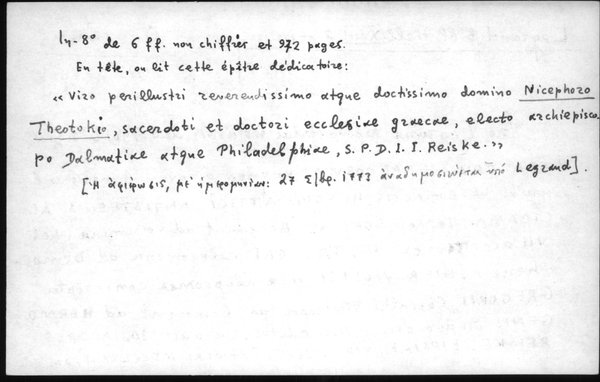 In-8° de 6 ff. non chiffrés et 972 pages.
En tête, on lit cette épître dédicatoire:
« Viro perillustri reverendissimo atque doctissimo domino Nicephoro
Theotokio, sacerdoti et doctori ecclesiae graecae, electo archiepisco
po Dalmatiae atque Philadelphiae, S. P. D. I. I. Reiske. »
[Ἡ ἀφιέρωσις, μὲ ἡμερομηνίαν: 27 7/βρ. 1773 ἀναδημοσιεύεται ὑπό Legrand].